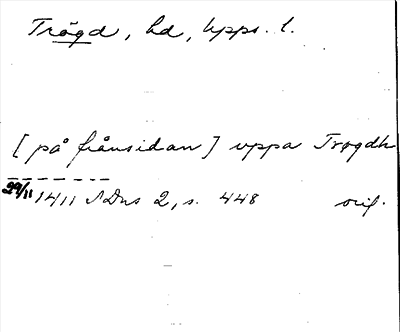 Trögd, hd, Upps. l.
[på frånsidan] uppa Trøgdh
29/11 1411 SDns 2, s. 448 orig.